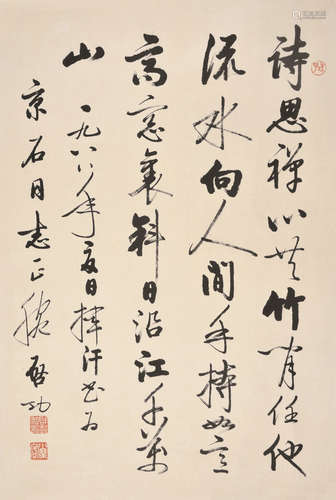 诗思禅心共竹閒任他
流水向人間手持如意
高窓裏斜日沿江千萬
山 一九八八年夏日揮汗书为
京石同志正腕 启功